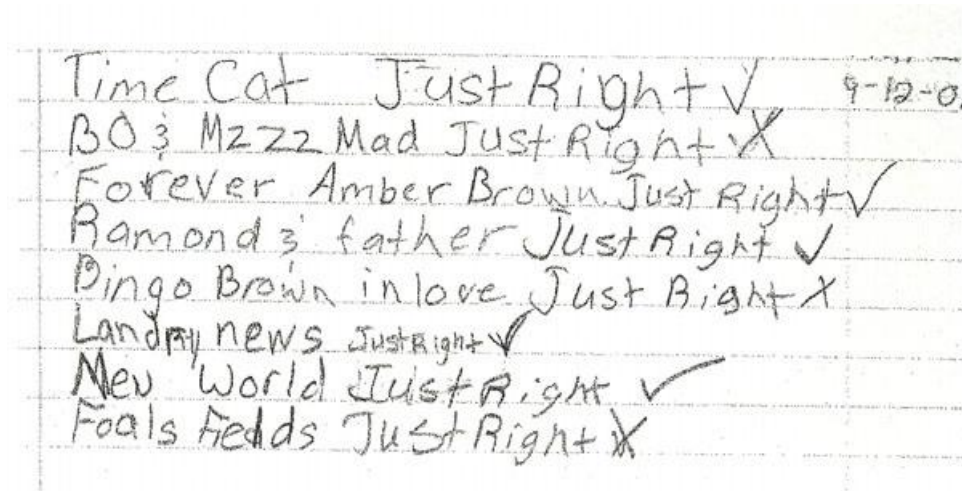 Time Cat Just Right ✓ 9-12-0
BO & Mzzz Mad Just Right X
Forever Amber Brown Just Right ✓
Ramond & father Just Right ✓
Bingo Brown in love Just Right X
Landry news Just Right ✓
Meu World Just Right ✓
Foals Just Right X